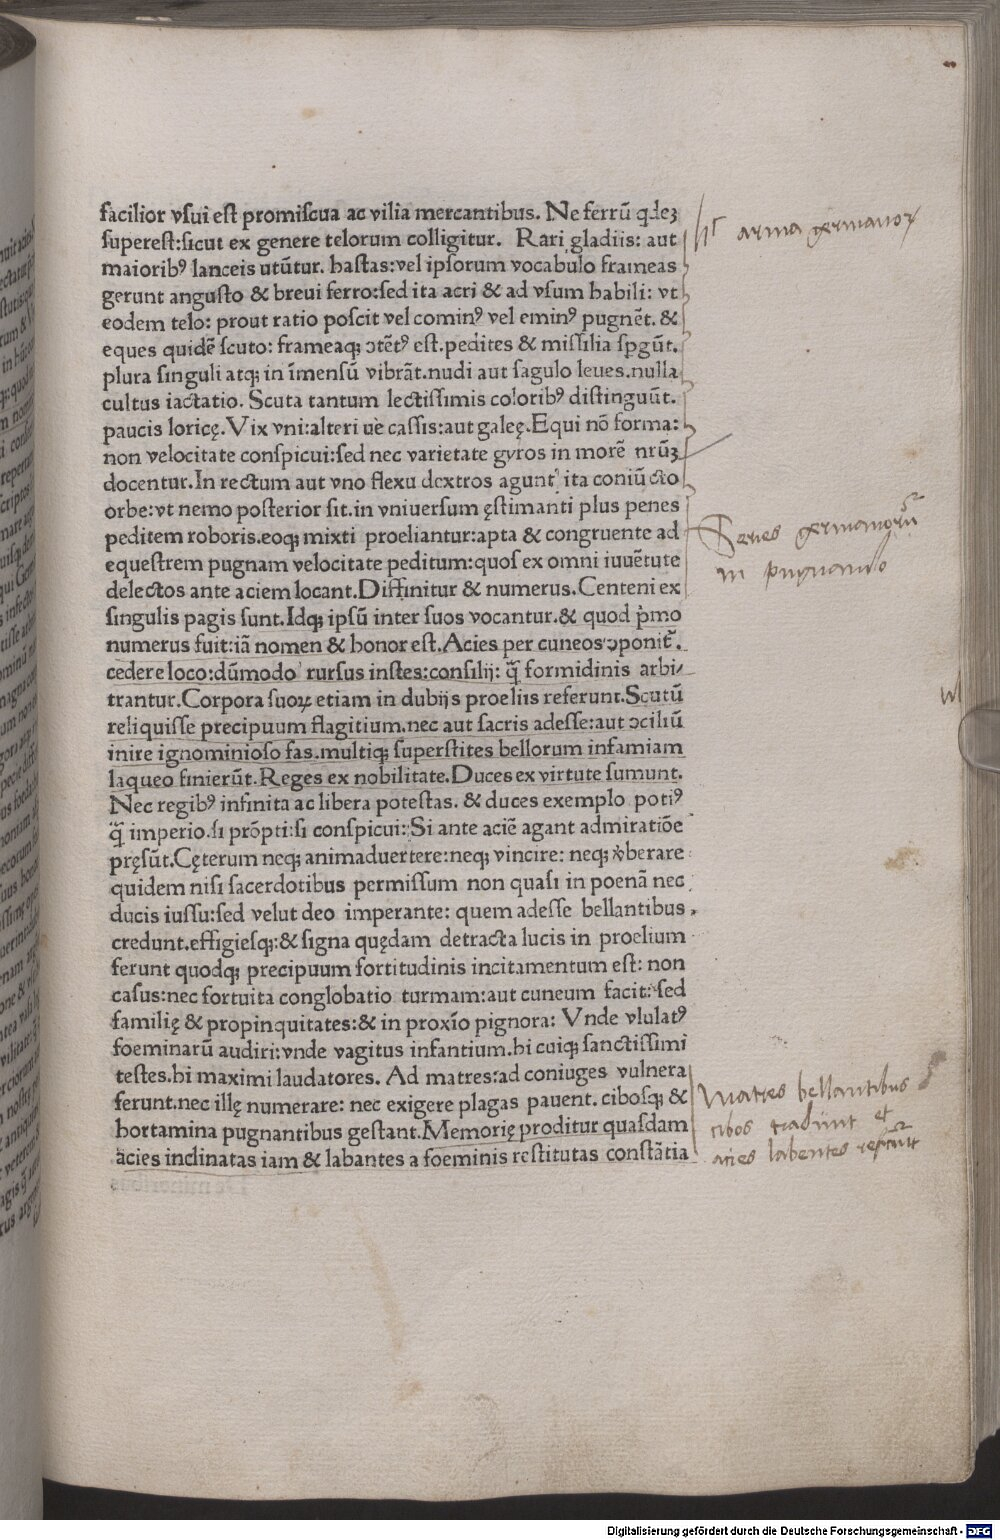 facilior vſui eſt promiſcua ac vilia mercantibus. Ne ferrū qͥdeꝫ
ſupereſt:ſicut ex genere telorum colligitur. Rari gladiis: aut
maioribꝰ lanceis utūtur. haſtas:vel ipſorum vocabulo frameas
gerunt anguſto & breui ferro:ſed ita acri & ad vſum habili: vt
eodem telo: prout ratio poſcit vel cominꝰ vel eminꝰ pugnēt. &
eques quidē ſcuto: frameaqꝫ ↄtētꝰ eſt.pedites & miſſilia ſpgūt.
plura ſinguli atqꝫ in īmenſū vibrāt.nudi aut ſagulo leues.nulla
cultus iactatio. Scuta tantum lectiſſimis coloribꝰ diſtinguūt.
paucis loricę.Vix vni:alteri ue caſſis:aut galeę.Equi nō forma:
non velocitate conſpicui:ſed nec varietate gyros in morē nr̄ūꝫ
docentur.In rectum aut vno flexu dextros agunt ita coniūcto
orbe:vt nemo poſterior ſit.in vniuerſum ęſtimanti plus penes
peditem roboris.eoqꝫ mixti proeliantur:apta & congruente ad
equeſtrem pugnam velocitate peditum:quoſ ex omni iuuētute
delectos ante aciem locant.Diffinitur & numerus.Centeni ex
ſingulis pagis ſunt.Idqꝫ ipſū inter ſuos vocantur.& quod pͥmo
numerus fuit:iā nomen & honor eſt.Acies per cuneos ↄponit᷑.
cedere loco:dūmodo rurſus inſtes:conſilij: q̄ formidinis arbi⸗
trantur.Corpora ſuoꝝ etiam in dubijs proeliis referunt.Scutū
reliquiſſe precipuum flagitium.nec aut ſacris adeſſe:aut ↄciliū
inire ignominioſo fas.multiqꝫ ſuperſtites bellorum infamiam
laqueo finierūt.Reges ex nobilitate.Duces ex virtute ſumunt.
Nec regibꝰ infinita ac libera poteſtas. & duces exemplo potiꝰ
q̄ imperio.ſi prōpti:ſi conſpicui:Si ante aciē agant admiratiōe
pręſūt.Cęterum neqꝫ animaduertere:neqꝫ vincire: neqꝫ v̄berare
quidem niſi ſacerdotibus permiſſum non quaſi in poenā nec
ducis iuſſu:ſed velut deo imperante: quem adeſſe bellantibus
credunt.effigieſqꝫ:& ſigna quędam detracta lucis in proelium
ferunt quodqꝫ precipuum fortitudinis incitamentum eſt: non
caſus:nec fortuita conglobatio turmam:aut cuneum facit:ſed
familię & propinquitates:& in proxīo pignora: Vnde vlulatꝰ
foeminarū audiri:vnde vagitus infantium.hi cuiqꝫ ſanctiſſimi
teſtes.hi maximi laudatores. Ad matres:ad coniuges vulnera
ferunt.nec illę numerare: nec exigere plagas pauent. ciboſqꝫ &
hortamina pugnantibus geſtant.Memorię proditur quaſdam
acies inclinatas iam & labantes a foeminis reſtitutas conſtātia
arma germanoꝝ
Series germanorū
in pugnando
Matres bellantibus
cibos tradunt et
acies labentes
Digitalisierung gefördert durch die Deutsche Forschungsgemeinschaft - DFG